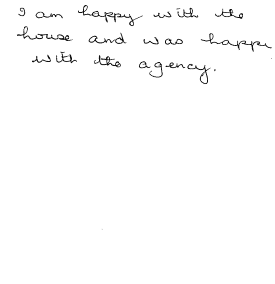 I am happy with the
house and was happy
with the agency.